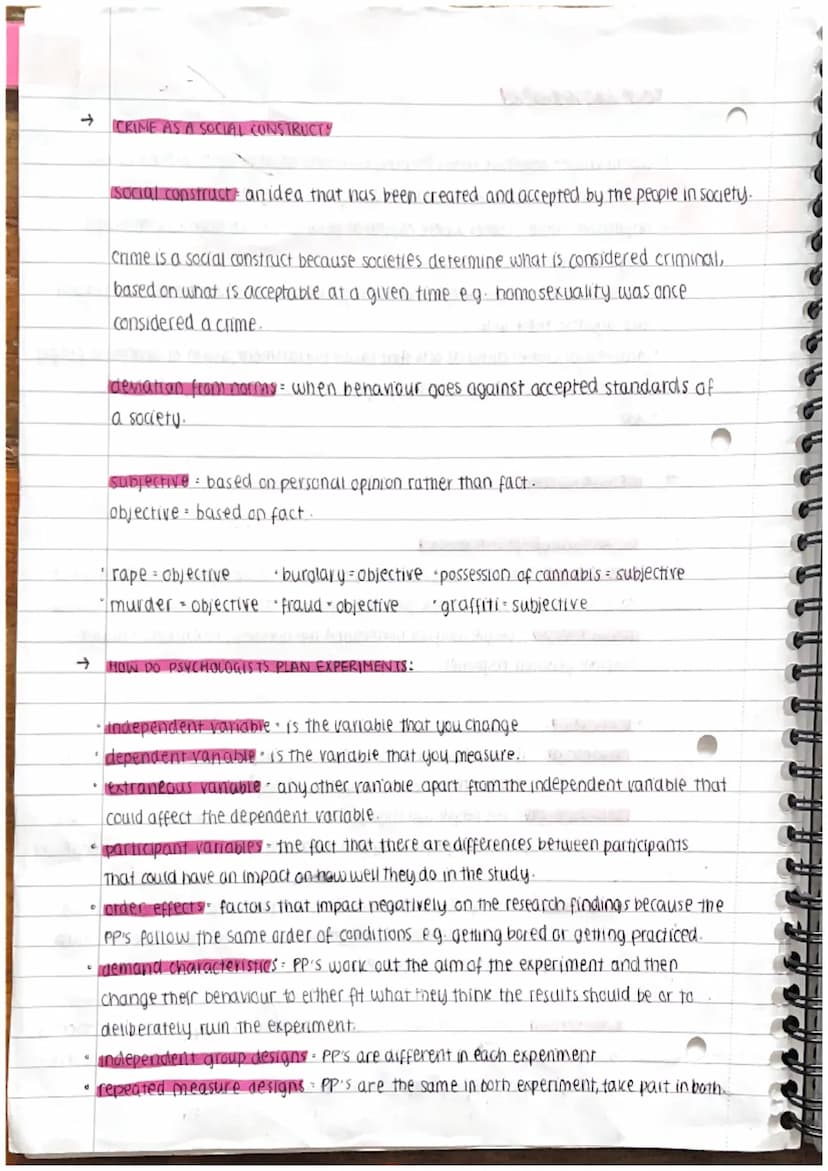 → CRIME AS A SOCIAL CONSTRUCT:
social construct = an idea that has been created and accepted by the people in society.
crime is a social construct because societies determine what is considered criminal,
based on what is acceptable at a given time e.g. homosexuality was once
considered a crime.
deviation from norms = when behaviour goes against accepted standards of
a society.
subjective = based on personal opinion rather than fact.
objective = based on fact.
· rape = objective · burglary = objective · possession of cannabis = subjective
· murder = objective · fraud = objective · graffiti = subjective
→ HOW DO PSYCHOLOGISTS PLAN EXPERIMENTS:
· independent variable = is the variable that you change
· dependent variable = is the variable that you measure.
· extraneous variable = any other variable apart from the independent variable that
could affect the dependent variable.
· participant variables = the fact that there are differences between participants
that could have an impact on how well they do in the study.
· order effects = factors that impact negatively on the research findings because the
PP's follow the same order of conditions e.g. getting bored or getting practiced.
· demand characteristics = PP's work out the aim of the experiment and then
change their behaviour to either fit what they think the results should be or to
deliberately ruin the experiment.
· independent group designs = PP's are different in each experiment
· repeated measure designs = PP's are the same in both experiment, take part in both.